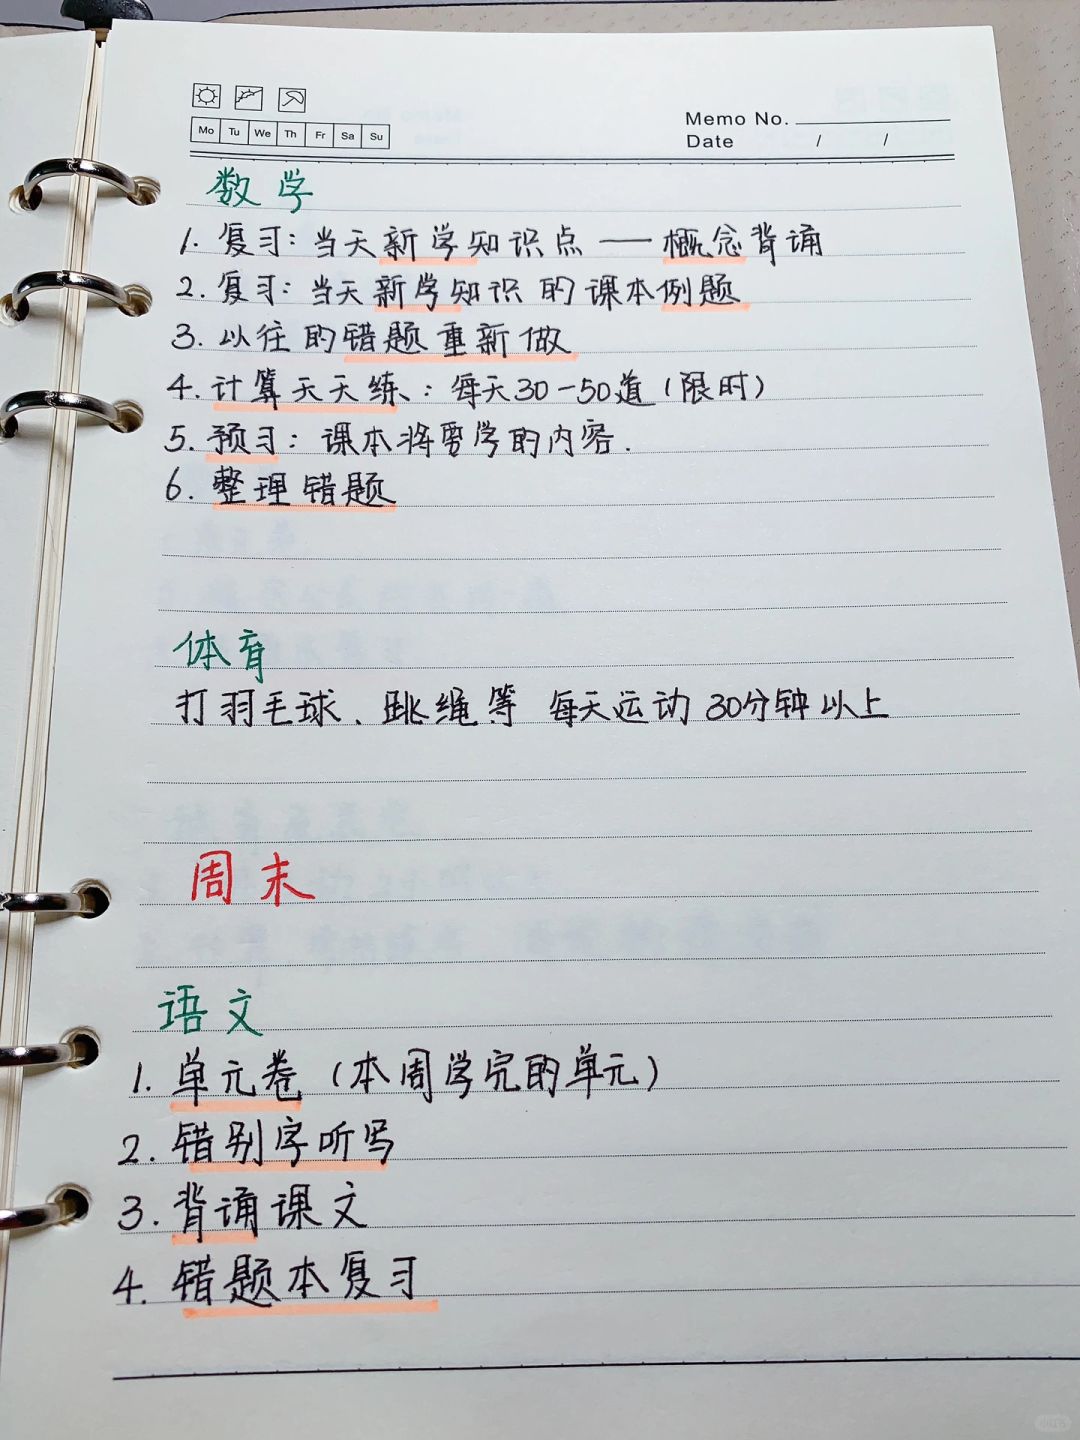 Mo Tu We Th Fr Sa Su
Memo No.
Date / /
数学
1. 复习：当天新学知识点 —— 概念背诵
2. 复习：当天新学知识的课本例题
3. 以往的错题重新做
4. 计算天天练：每天30-50道（限时）
5. 预习：课本将要学的内容.
6. 整理错题
体育
打羽毛球、跳绳等 每天运动30分钟以上
周末
语文
1. 单元卷（本周学完的单元）
2. 错别字听写
3. 背诵课文
4. 错题本复习